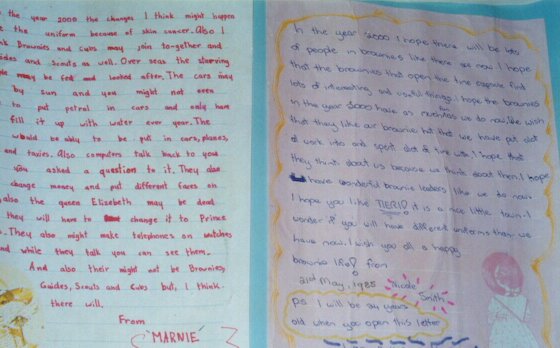 the year 2000 the changes I think might happen
the uniform because of skin cancer. Also I
Brownies and Cubs may join to-gether and
and Scouts as well. Over seas the starving
may be fed and looked after. The cars may
by sun and you might not even
to put petrol in cars and only have
fill it up with water ever year. The
would be ably to be put in cars, planes,
and taxies. Also computers talk back to you
you asked a question to it. They also
change money and put different faces on
also the queen Elizebeth may be dead
they will have to change it to Prince
They also might make telephones on watches
and while they talk you can see them.
And also their might not be Brownies,
Guides, Scouts and Cubs but, I think
there will.
From
MARNIE
In the year 2000 I hope there will be lots
of people in brownies like there are now. I hope
that the brownies that open the time capsule find
lots of interesting and useful things. I hope the brownies
in the year 2000 have as much fun as we do now. We wish
that they like our brownie but that we have put alot
of work into and spent alot of time with. I hope that
they think about us because we think about them. I hope
have wonderful brownie leaders like we do now.
I hope you like TIERI? it is a nice little town. I
wonder if you will have different uniforms than we
have now. I wish you all a happy
brownie life! from
21st May, 1985 Nicole Smith
ps I will be 24 years
old when you open this letter